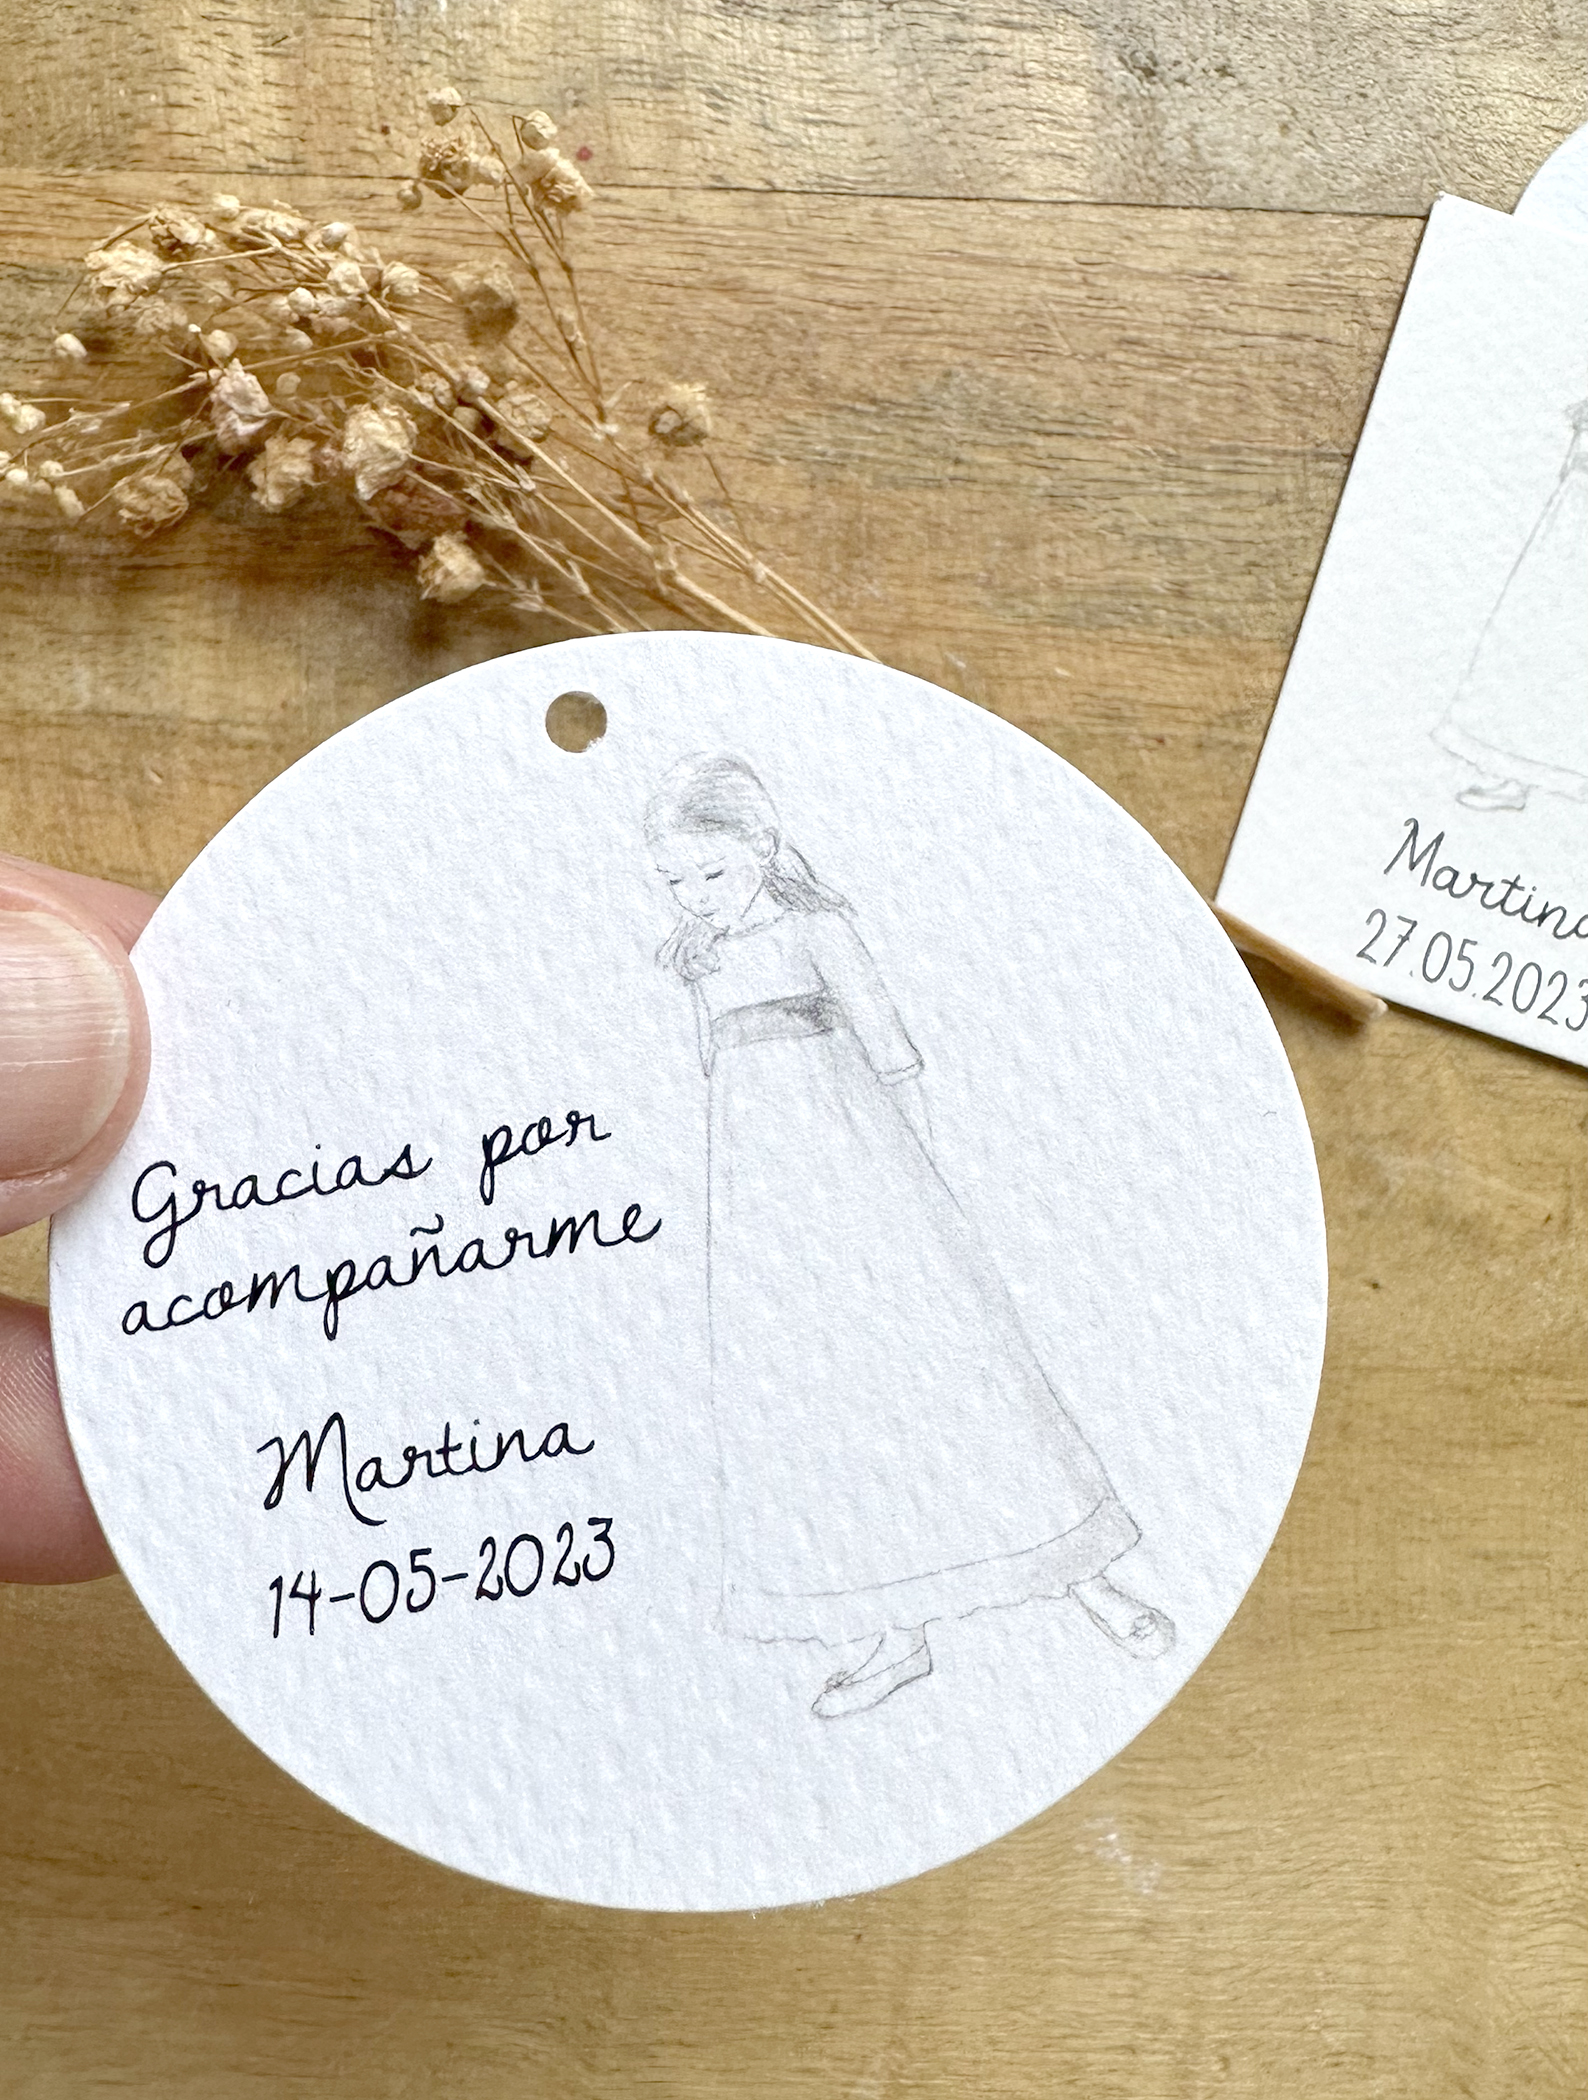 Gracias por
acompañarme
Martina
14-05-2023
Martina
27.05.2023